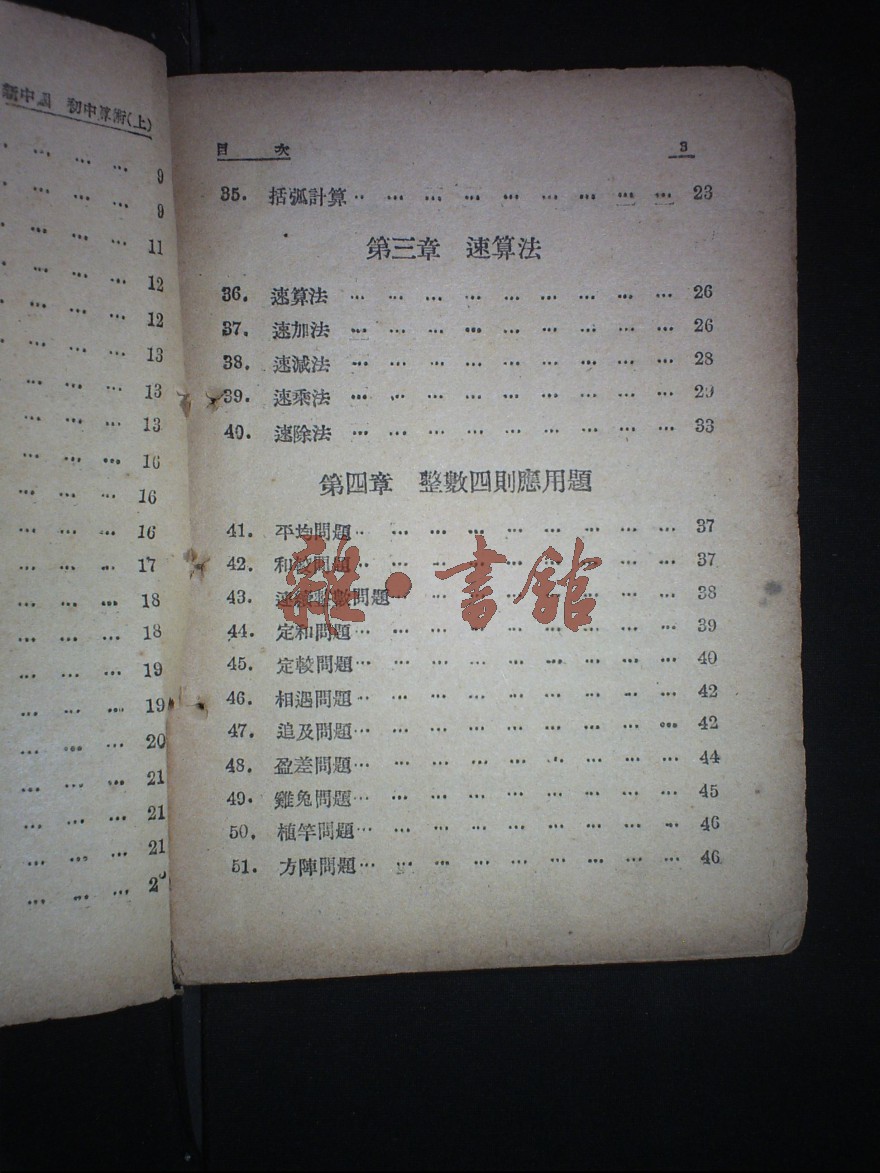 新中國 初中算術(上)
… … … 9
… … … 9
… … … 11
… … … 12
… … … 12
… … … 13
… … … 13
… … … 13
… … … 16
… … … 16
… … … 16
… … … 17
… … … 18
… … … 18
… … … 19
… … … 19
… … … 20
… … … 21
… … … 21
… … … 21
… … … 2
目 次 3
35. 括弧計算 … … … … … … … … 23
第三章 速算法
36. 速算法 … … … … … … … … … 26
37. 速加法 … … … … … … … … … 26
38. 速減法 … … … … … … … … … 28
39. 速乘法 … … … … … … … … … 29
40. 速除法 … … … … … … … … … 33
第四章 整數四則應用題
41. 平均問題 … … … … … … … … … 37
42. 和較問題 … … … … … … … … … 37
43. 連續整數問題 … … … … … … … … 38
44. 定和問題 … … … … … … … … … 39
45. 定較問題 … … … … … … … … … 40
46. 相遇問題 … … … … … … … … … 42
47. 追及問題 … … … … … … … … … 42
48. 盈差問題 … … … … … … … … … 44
49. 雞兔問題 … … … … … … … … … 45
50. 植竿問題 … … … … … … … … … 46
51. 方陣問題 … … … … … … … … … 46
雜·書館